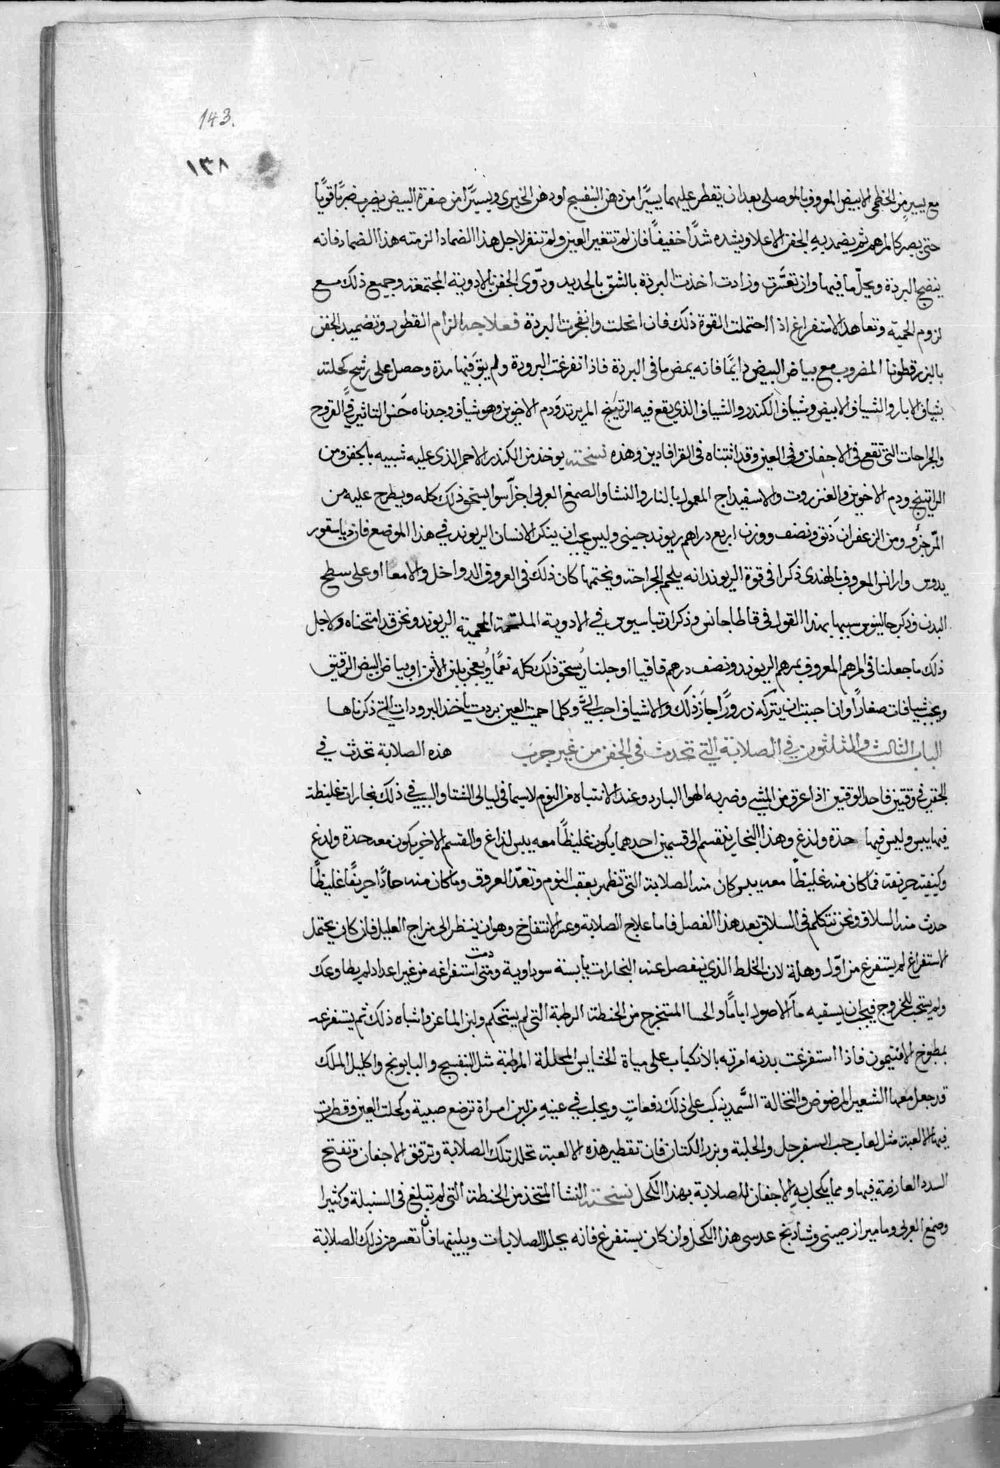 143.
١٣٨
مع يسير من الخطمى الابيض المعروف بالموصلى بعد ان يقطر عليهما يسيرًا من دهن البنفسج او دهن الخيرى ويسيرًا من صفرة البيض يضرب ضربًا قويًا
حتى يصير كالمرهم ثم يضمد به الجفن الاعلا ويشده شدًا خفيفًا فان لم تتغير العين ولم تنفر لاجل هذا الضماد الزمته هذا الضماد فانه
ينضج البردة ويحلل ما فيها وان تعسّرت وزادت اخذت البردة بالشق بالحديد ودوّى الجفن بالادوية المجتمعة وجميع ذلك مع
لزوم الحمية وتعاهد الاستفراغ اذا احتملت القوة ذلك فان انحلت وانفجرت البردة فعلاجه الزام القطور وتضميد الجفن
بالبزرقطونا المضروب مع بياض البيض دايمًا فانه يمص ما فى البردة فاذا تفرغت البرودة ولم يبق فيها مدة وحصل على رشح كحلته
بشياف الابار والشياف الابيض وشياف الكندر والشياف الذى يقع فيه الريتينج المربّى ودم الاخوين وهو شياف وجدناه حسن التاثير فى القروح
والجراحات التى تقع فى الاجفان وفى العين وقد اثبتناه فى القرافادين وهذه نسخته يوخذ من الكندر الاحمر الذى عليه شبيه بالجفن ومن
الراتينج ودم الاخوين والعنزروت والاسفيداج المعمول بالنار والنشا والصمغ العربى اجزآ سوا يسحق ذلك كله ويطرح عليه من
المر جزؤ ومن الزعفران دنق ونصف ووزن اربع دراهم ريوند جينى وليس يجب ان ينكر الانسان الريوند فى هذا الموضع فان دياسقور
يدوس وارانس المعروف بالهندى ذكرا فى قوة الريوند انه يلحم الجراحة ويختمها كان ذلك فى العروق الدواخل والامعا او على سطح
البدن وذكر جالينوس شبيها بهذا القول فى قاطاجانس وذكر ارتباسيوس فى الادوية الملتحمة المحمية الريوند ونحن قد امتحناه ولاجل
ذلك ما جعلنا فى المرهم المعروف بمرهم الريوند ونصف درهم قاقيا اوجلنار يسحق ذلك كله نعمًا ويعجن بلبن الاتن او بياض البيض الرقيق
ويحبب شيافات صغارًا وان احببت ان يتركه ذرورًا جاز ذلك والاشياف احب الىّ وكلما حميت العين بردت باخذ البرودات التى ذكرناها
الباب الثالث والثلثون فى الصلابة التى تحدث فى الجفن من غير جرب هذه الصلابة تحدث فى
الجفن فى وقتين فاحد الوقتين اذا عرق من المشى وضربه الهوا البارد وعند الانتباه من النوم لاسيما فى ليالى الشتا والسبب فى ذلك بخارات غليظة
فيها يبس وليس فيها حدة ولذع وهذا البخار ينقسم الى قسمين احدهما يكون غليظًا معه يبس لذاع والقسم الاخر يكون معه حدة ولدغ
وكيفية حريفة فما كان منه غليظًا معه يبس كان منه الصلابة التى تظهر بعقب النوم وتمدّ العروق وما كان منه حادًا حريفًا غليظًا
حدث منه السلاق ونحن نتكلم فى السلاق بعد هذا الفصل فاما علاج الصلابة وعسر الانفتاح وهو ان ينظر الى مزاج العليل فان كان يحتمل
الاستفراغ لم يستفرغ من اوّل وهلة لان الخلط الذى ينفصل عنه البخارات يابسة سوداوية ومتى دمت استفراغه من غير اعداد لم يطاوعك
ولم يستجب للخروج فيجب ان يسقيه مآ الاصول اياما والحسا المتخرج من الحنطة الرطبة التى لم يستحكم ولبن الماعز واشباه ذلك ثم يستفرغه
بمطبوخ الافتيمون فاذا استفرغت بدنه امرته بالانكباب على مياة الحشايش المحللة المرطبة مثل البنفسج والبابونج واكليل الملك
قد جعل معها الشعير المرضوض والنخالة السّميد ينكب على ذلك دفعات ويحلب فى عينيه من لبن امراة ترضع صبية وكحلت العين وقطرت
فيها الالعبة مثل لعاب حب السفرجل والحلبة وبزر الكتان فان تقطير هذه الالعبة تحلل تلك الصلابة وترقق الاجفان وتفتح
السدد العارضة فيها ومما يكحل به الاجفان للصلابة بهذا الكحل نسخته النشا المتخذ من الحنطة التى لم تبلغ فى السنبلة وكثيرا
وصمغ العربى وماميران صينى وشادنج عدسى هذا الكحل وان كان يستفرغ فانه يحلل الصلابات ويلينها فان تعسر من ذلك الصلابة